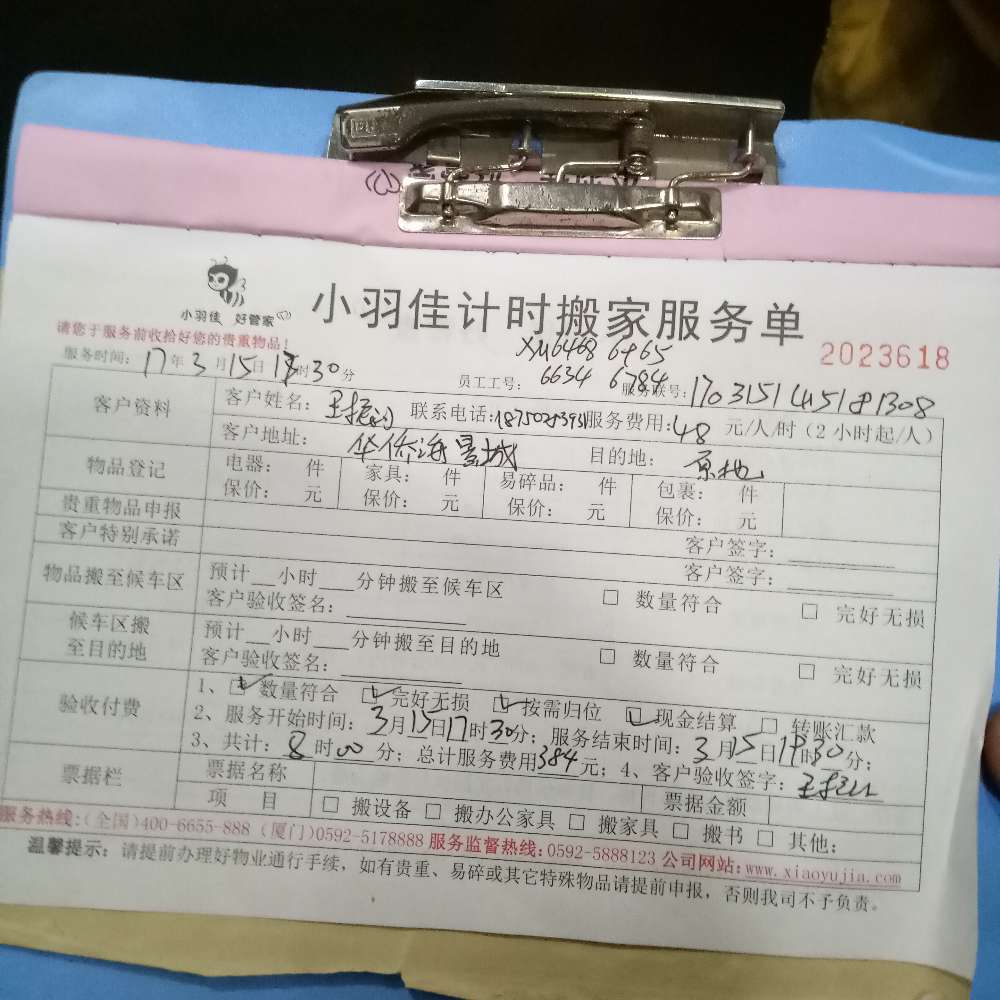 小羽佳 好管家
小羽佳计时搬家服务单
请您于服务前收拾好您的贵重物品!
2023618
服务时间: 17年3月15日17时30分
员工工号: XM6468 6465
6634 6784
服务联号: 1703151415181308
客户资料
客户姓名: 联系电话: 服务费用: 48 元/人/时 (2小时起/人)
客户地址: 华侨海景城 目的地: 原地
物品登记
电器: 件 家具: 件 易碎品: 件 包裹: 件
保价: 元 保价: 元 保价: 元 保价: 元
贵重物品申报
客户签字:
客户特别承诺
客户签字:
物品搬至候车区
预计__小时___分钟搬至候车区 □ 数量符合 □ 完好无损
客户验收签名:
候车区搬
至目的地
预计__小时___分钟搬至目的地 □ 数量符合 □ 完好无损
客户验收签名:
验收付费
1、☑数量符合 ☑完好无损 ☑按需归位 ☑现金结算 □ 转账汇款
2、服务开始时间: 3月15日17时30分; 服务结束时间: 3月15日19时30分;
3、共计: 8时00分; 总计服务费用384元; 4、客户验收签字:
票据栏
票据名称 票据金额
项 目 □ 搬设备 □ 搬办公家具 □ 搬家具 □ 搬书 □ 其他:
服务热线:(全国)400-6655-888 (厦门)0592-5178888 服务监督热线:0592-5888123 公司网站:www.xiaoyujia.com
温馨提示: 请提前办理好物业通行手续, 如有贵重、易碎或其它特殊物品请提前申报, 否则我司不予负责。